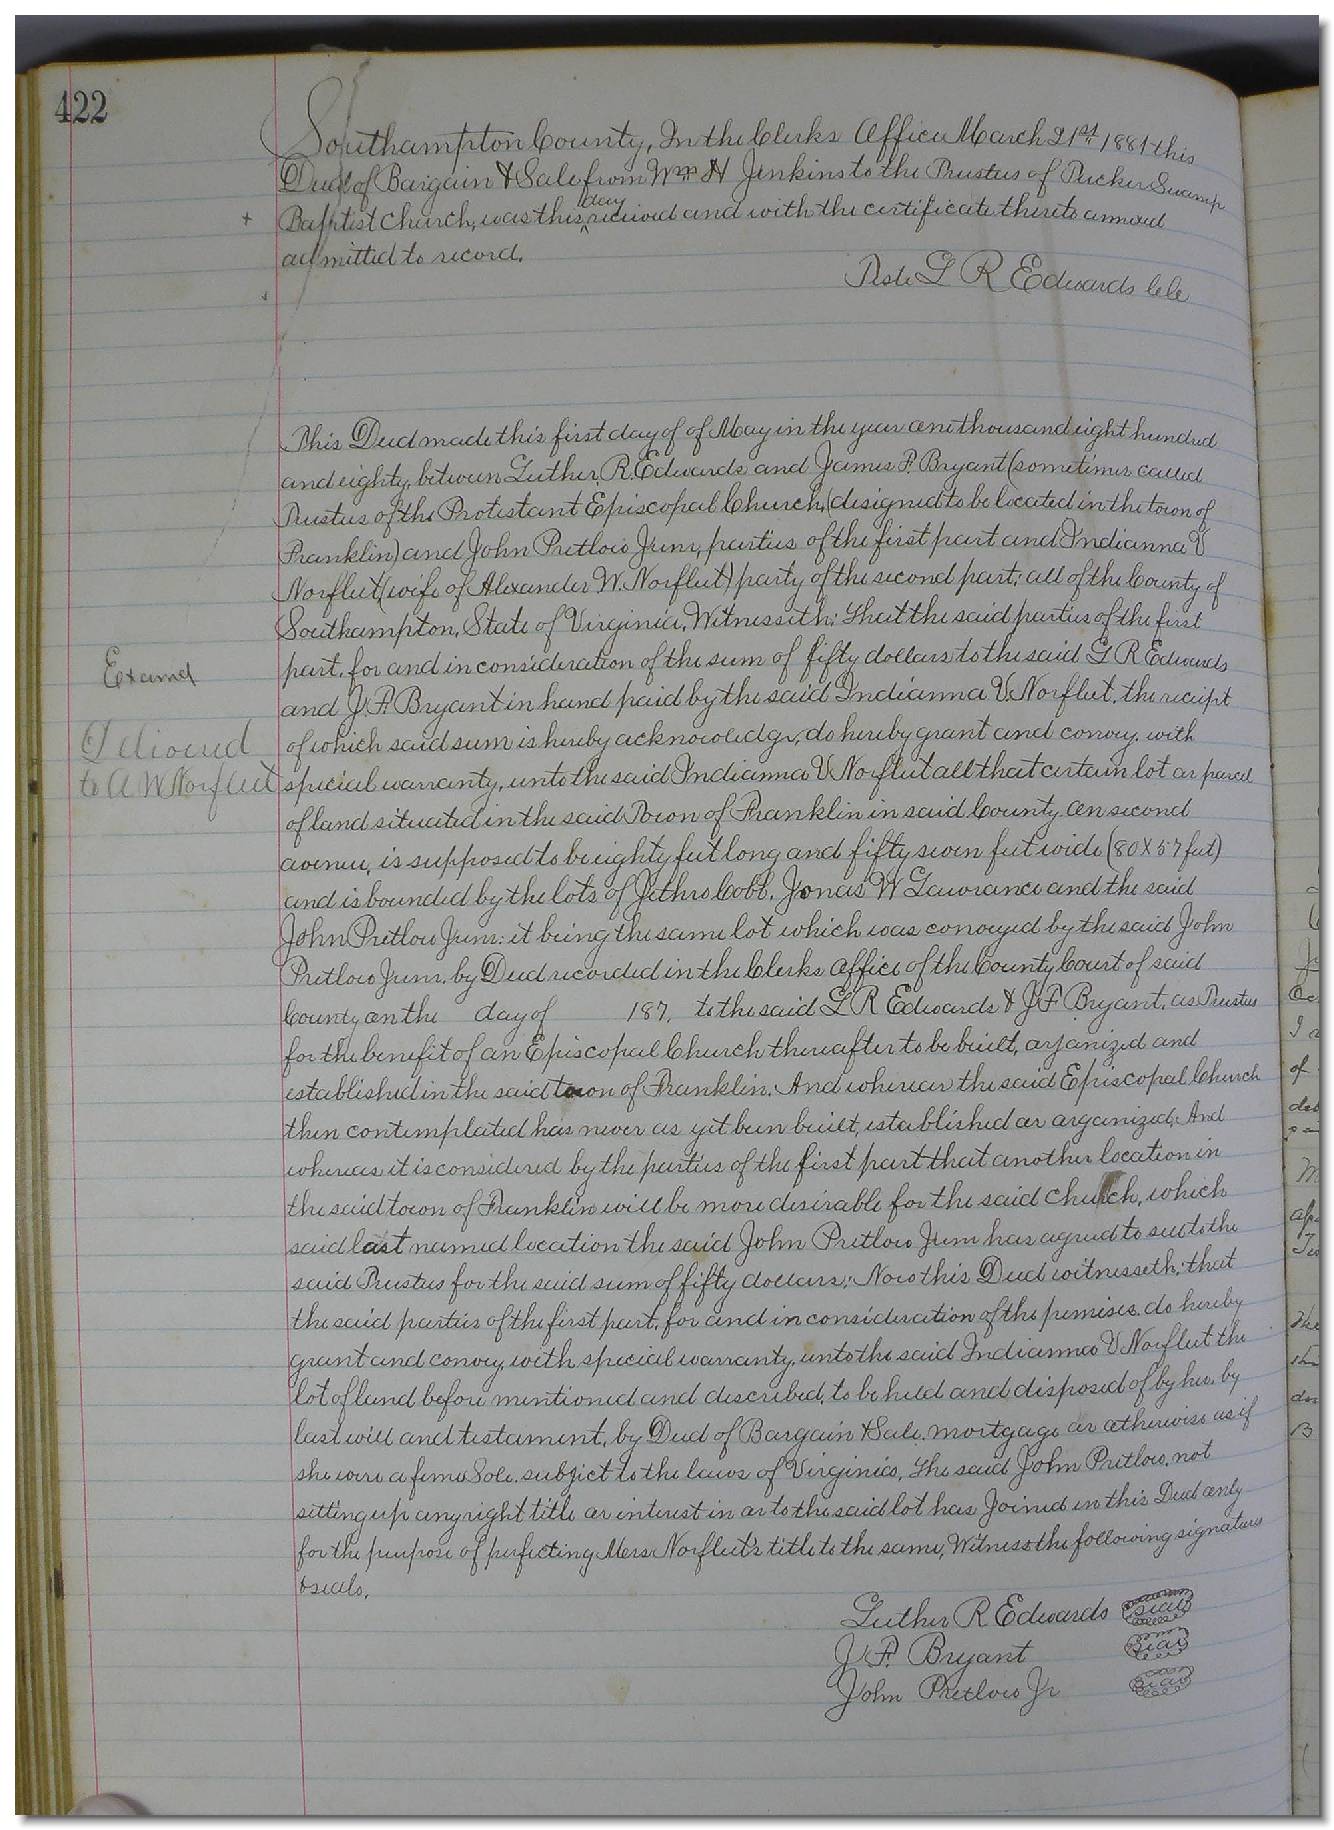 422
Southampton County, In the Clerks Office March 21st 1881 this
Deed of Bargain & Sale from Wm H Jenkins to the Trustees of Tucker Swamp
Baptist Church, was this day received and with the certificate thereto annexed
admitted to record.
Teste L R Edwards C C
This Deed made this first day of of May in the year one thousand eight hundred
and eighty, between Luther R. Edwards and James F. Bryant (sometimes called
Trustees of the Protestant Episcopal Church, (designed to be located in the town of
Franklin) and John Pretlow Junr, parties of the first part and Indianna V
Norfleet (wife of Alexander W. Norfleet) party of the second part; all of the County of
Southampton, State of Virginia, Witnesseth: That the said parties of the first
part, for and in consideration of the sum of fifty dollars to the said L R Edwards
Examd
and J. F. Bryant in hand paid by the said Indianna V. Norfleet, the receipt
Delivered
of which said sum is hereby acknowledge, do hereby grant and convey, with
to A W Norfleet
special warranty, unto the said Indianna V Norfleet all that certain lot or parcel
of land situated in the said Town of Franklin in said County on second
avenue, is supposed to be eighty feet long and fifty seven feet wide (80 X 57 feet)
and is bounded by the lots of Jethro Cobb, Jonas W Lawrance and the said
John Pretlow Junr: it being the same lot which was conveyed by the said John
Pretlow Junr. by Deed recorded in the Clerks Office of the County Court of said
County on the day of 187, to the said L R Edwards & J F Bryant, as Trustees
for the benefit of an Episcopal Church thereafter to be built, organized and
established in the said town of Franklin. And whereas the said Episcopal Church
then contemplated has never as yet been built, established or organized, And
whereas it is considered by the parties of the first part that another location in
the said town of Franklin will be more desirable for the said church, which
said last named location the said John Pretlow Junr has agreed to sell to the
said Trustees for the said sum of fifty dollars; Now this Deed witnesseth; that
the said parties of the first part, for and in consideration of the premises do hereby
grant and convey, with special warranty, unto the said Indianna V Norfleet the
lot of land before mentioned and described, to be held and disposed of by her, by
last will and testament, by Deed of Bargain & Sale, mortgage or otherwise as if
she were a feme Sole, subject to the laws of Virginia, The said John Pretlow, not
setting up any right title or interest in or to the said lot has Joined in this Deed only
for the purpose of perfecting Mers Norfleet's title to the same, Witness the following signatures
& seals.
Luther R Edwards Seal
J. F. Bryant Seal
John Pretlow Jr Seal